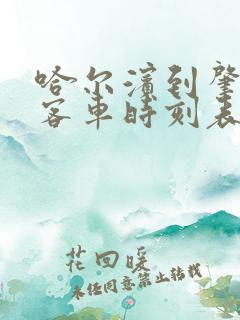 哈尔滨到肇
客车时刻表
花回暖
未经同意禁止转载